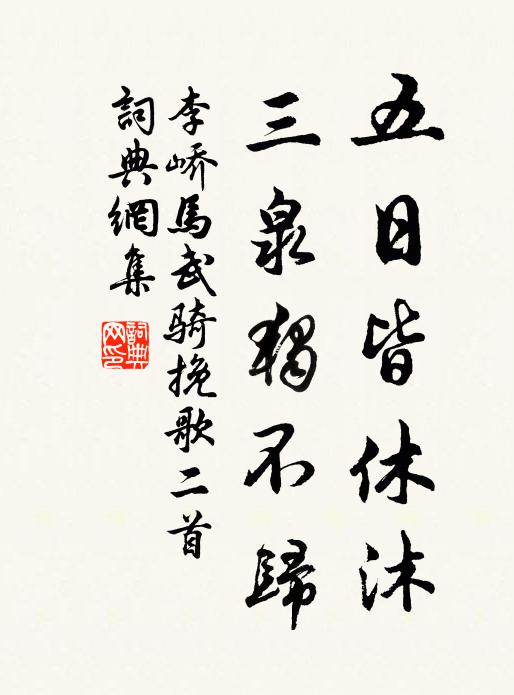 五日皆休沐
三泉獨不歸
李嶠馬武騎挽歌二首
詞典網集
詞典網印